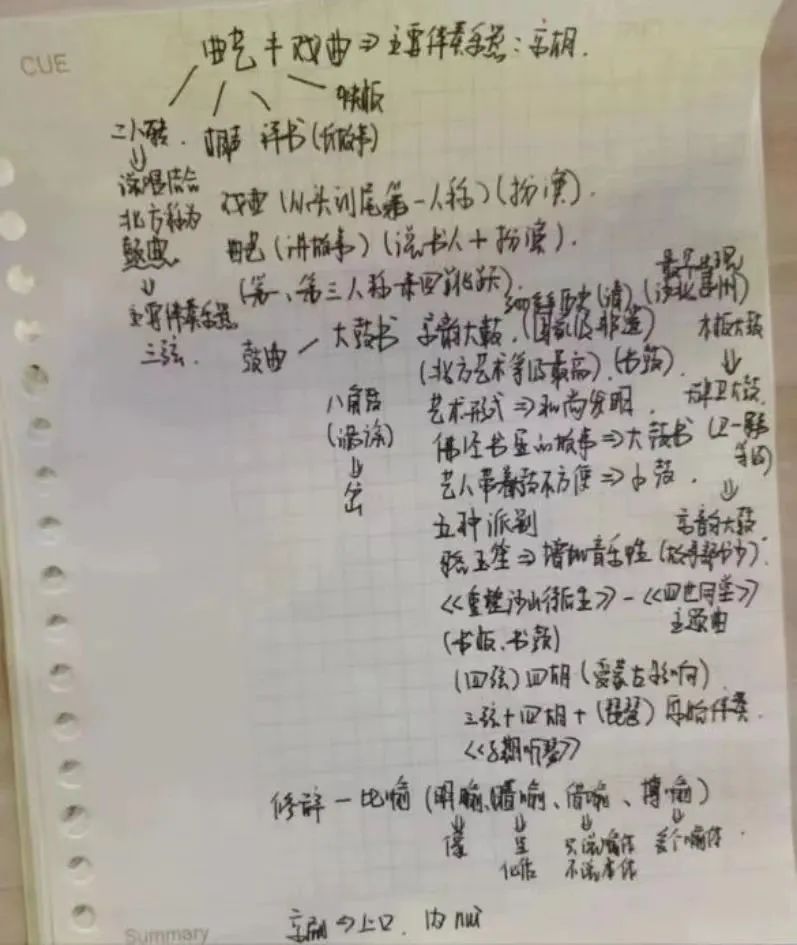 CUE
曲艺 ≠ 戏曲 ⇒ 主要伴奏乐器：京胡.
快板
二人转. 相声 评书（长故事）
⇓
说唱结合
北方称为
鼓曲.
↓
主要伴奏乐器
三弦.
戏曲（从头到尾第一人称）（扮演）.
曲艺（讲故事）（说书人+扮演）.
（第一、第三人称来回跳跃）.
鼓曲 大鼓书 京韵大鼓.（国家级非遗）
历史（清）.
最早出现
（河北 州）
（北方艺术等级最高）.（书鼓）.
八角鼓
⇓
艺术形式 ⇒ 和尚发明.
佛经书里的故事 ⇒ 大鼓书
艺人带着鼓不方便 ⇒ 小鼓.
木板大鼓
↓
天津卫大鼓.
⇓
京韵大鼓
五种派别
骆玉笙 ⇒ 增加音乐性（故事部分少）.
《重整河山待后生》-《四世同堂》
主题曲
（书板、书鼓）
（四弦）四胡（受蒙古影响）
三弦+四胡+（琵琶）原始伴奏.
《子期听琴》
修辞 — 比喻（明喻、暗喻、借喻、博喻）
⇓ ⇓ ⇓ ⇓
像 是 只说喻体 多个喻体.
化作 不说本体
京剧 上口. 内 nuì
Summary